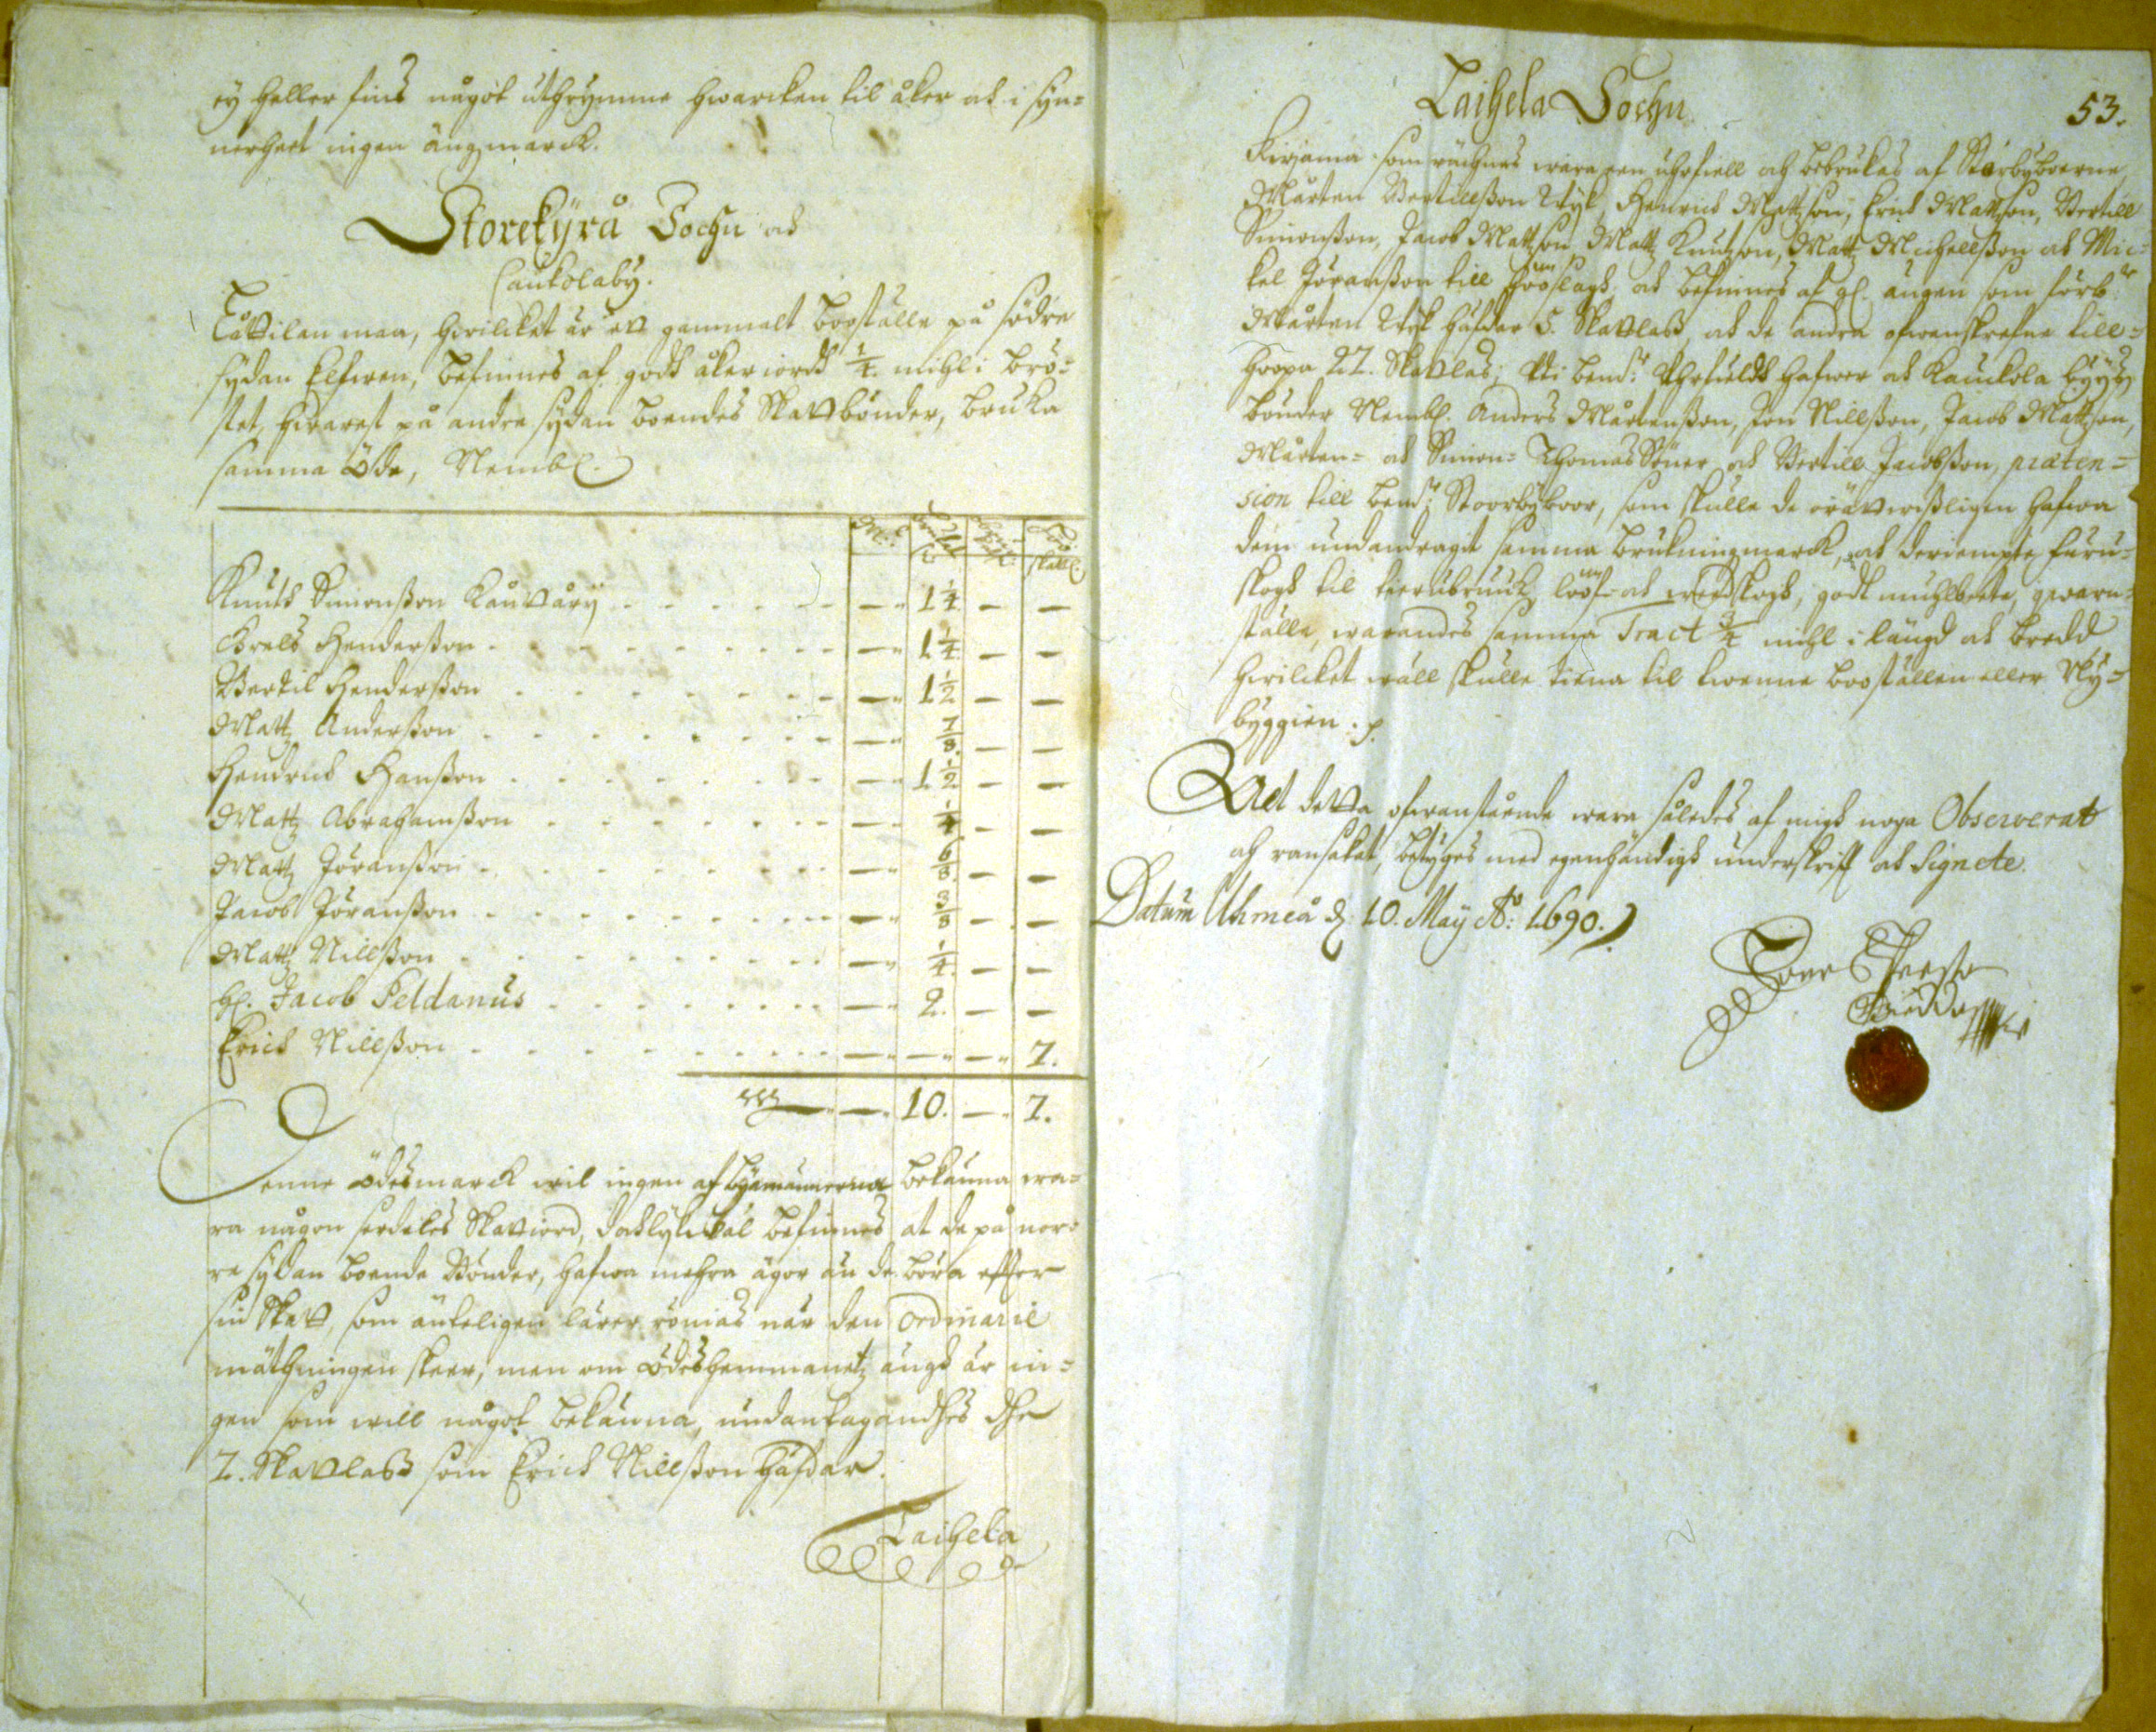 ey heller fins något uthrymme hwarcken til åker och i syn=
nerheet ingen ängzmarck.
Storekyrå Sochn och
Caukolaby.
Låttilan maa, hwilcket är ett gammalt booställe på södre
sydan Elfwen, befinnes af godh åkeriordh 1/4 mihl i brö=
stet, hwarest på andre sydan boendes Skattbönder, bruka
samma Öde, Nembl.
Knuth Simonsson Kauttåry — 1 1/4 — —
Brels Hendersson — 1 1/4 — —
Bertil Hendersson — 1 1/2 — —
Matz Andersson — 7/8 — —
Hendrich Hansson — 1 1/2 — —
Matz Abrahamsson — 1/4 — —
Matz Jöransson — 6/8 — —
Jacob Jöransson — 3/8 — —
Matz Nillsson — 1/4 — —
H. Jacob Peldanus — 2. — —
Erich Nillsson — — — 7.
— 10. — 7.
Denne ödesmarck wil ingen af byamännerna bekänna wa=
ra någon serdeles Skattiord, doch lykwäl befinnes at de på nor=
re sydan boende Bönder, hafwa mehra ägor än de böra effter
sin Skatt, som änteligen lärer rönias när den ordinarie
mäthningen skeer, men om ödeshemmanetz ängh är in=
gen som will något bekänna, undantagandhes dhe
7. Skattlass som Erich Nillsson häfdar.
Laihela
Laihela Sochn 53.
Kirjama som räknes wara een uthfiell och bebrukas af Storbyboerne
Mårten Bertillsson Ryk, Henrich Mattzson, Erich Mattzson, Bertill
Simonsson, Jacob Mattzson, Matz Knutzson, Matz Michellsson och Mic=
kel Jöransson till höö slagh, och befinnes af gl. ängen som förbte
Mårten Ryk häfdar 5. Skattlass, och de andra ofwanskrefne till=
hoopa 27. Skattlas; Uti bemte Uthfieldh hafwer och Kaukola byyss
bönder Nembl. Anders Mårtensson, Jon Nillsson, Jacob Mattzson,
Mårten= och Simon= Thomas Söner och Bertill Jacobsson, præten=
sion till bemte Stoorbyboor, som skulle de orättwissligen hafwa
dem undandragit samma brukningzmarck, och derjempte furu=
skogh til tierubruuk, lööf= och wedskogh, godt muhlbete, qwarn=
ställe, warandes samma Tract 3/4 mihl i längd och bredd
hwilcket wäll skulle tiena til twenne booställen eller Ny=
byggien.
At detta ofwanstående wara således af migh noga Observerat
och ransakat, betyges med egenhändigh underskrifft och Signete.
Datum Uhmeå d. 10. Maÿ Ao: 1690.